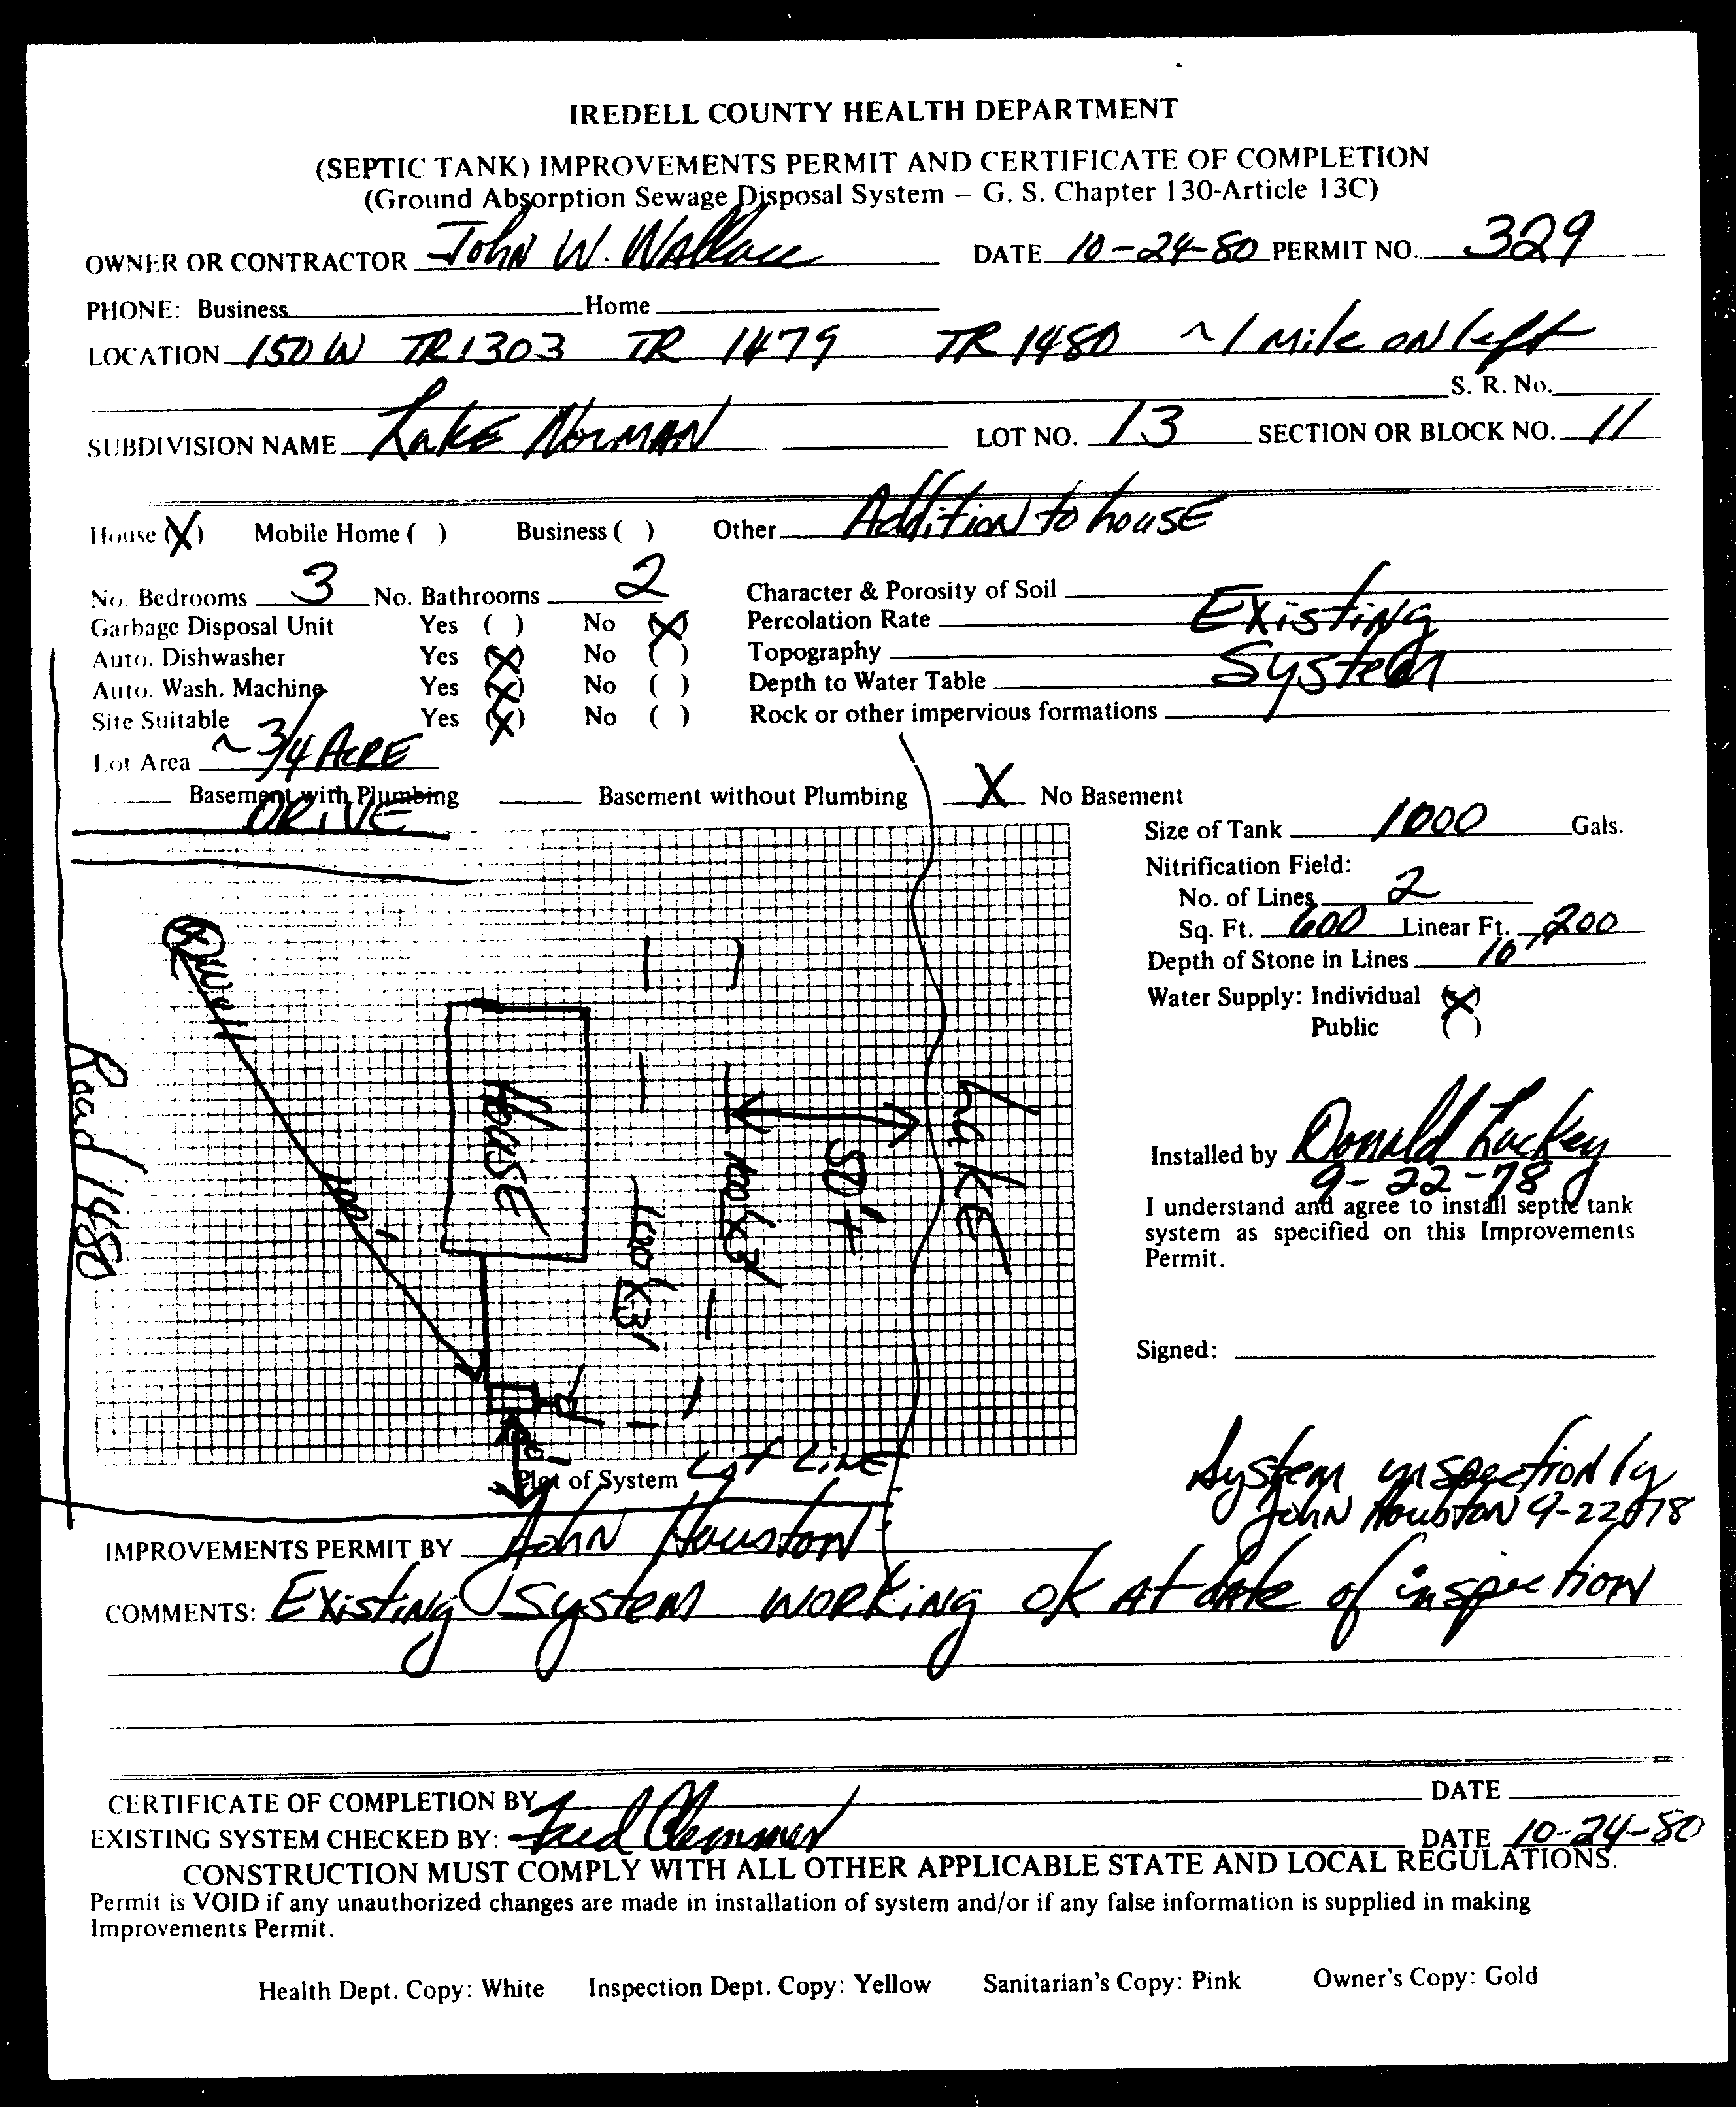 IREDELL COUNTY HEALTH DEPARTMENT
(SEPTIC TANK) IMPROVEMENTS PERMIT AND CERTIFICATE OF COMPLETION
(Ground Absorption Sewage Disposal System — G. S. Chapter 130-Article 13C)
OWNER OR CONTRACTOR John W. Wallace DATE 10-24-80 PERMIT NO. 329
PHONE: Business Home
LOCATION 150 W TR 1303 TR 1479 TR 1480 ~ 1 Mile on left
S. R. No.
SUBDIVISION NAME Lake Norman LOT NO. 13 SECTION OR BLOCK NO. 11
House (X) Mobile Home ( ) Business ( ) Other Addition to house
No. Bedrooms 3 No. Bathrooms 2 Character & Porosity of Soil
Garbage Disposal Unit Yes ( ) No (X) Percolation Rate Existing
Auto. Dishwasher Yes (X) No ( ) Topography System
Auto. Wash. Machine Yes (X) No ( ) Depth to Water Table
Site Suitable Yes (X) No ( ) Rock or other impervious formations
Lot Area ~ 3/4 ACRE
Basement with Plumbing Basement without Plumbing X No Basement
DRIVE
Size of Tank 1000 Gals.
Nitrification Field:
No. of Lines 2
Sq. Ft. 600 Linear Ft. 200
Depth of Stone in Lines 10"
Water Supply: Individual (X)
Public ( )
Well
Road 1480
100'
House
100'x3'
100'x3'
50'+
Lake
Installed by Donald Lackey
9-22-78
I understand and agree to install septic tank
system as specified on this Improvements
Permit.
Signed:
Plot of System Lot Line
System inspection by
John Houston 9-22-78
IMPROVEMENTS PERMIT BY John Houston
COMMENTS: Existing System working ok at date of inspection
CERTIFICATE OF COMPLETION BY DATE
EXISTING SYSTEM CHECKED BY: Fred Clemmer DATE 10-24-80
CONSTRUCTION MUST COMPLY WITH ALL OTHER APPLICABLE STATE AND LOCAL REGULATIONS.
Permit is VOID if any unauthorized changes are made in installation of system and/or if any false information is supplied in making
Improvements Permit.
Health Dept. Copy: White Inspection Dept. Copy: Yellow Sanitarian's Copy: Pink Owner's Copy: Gold